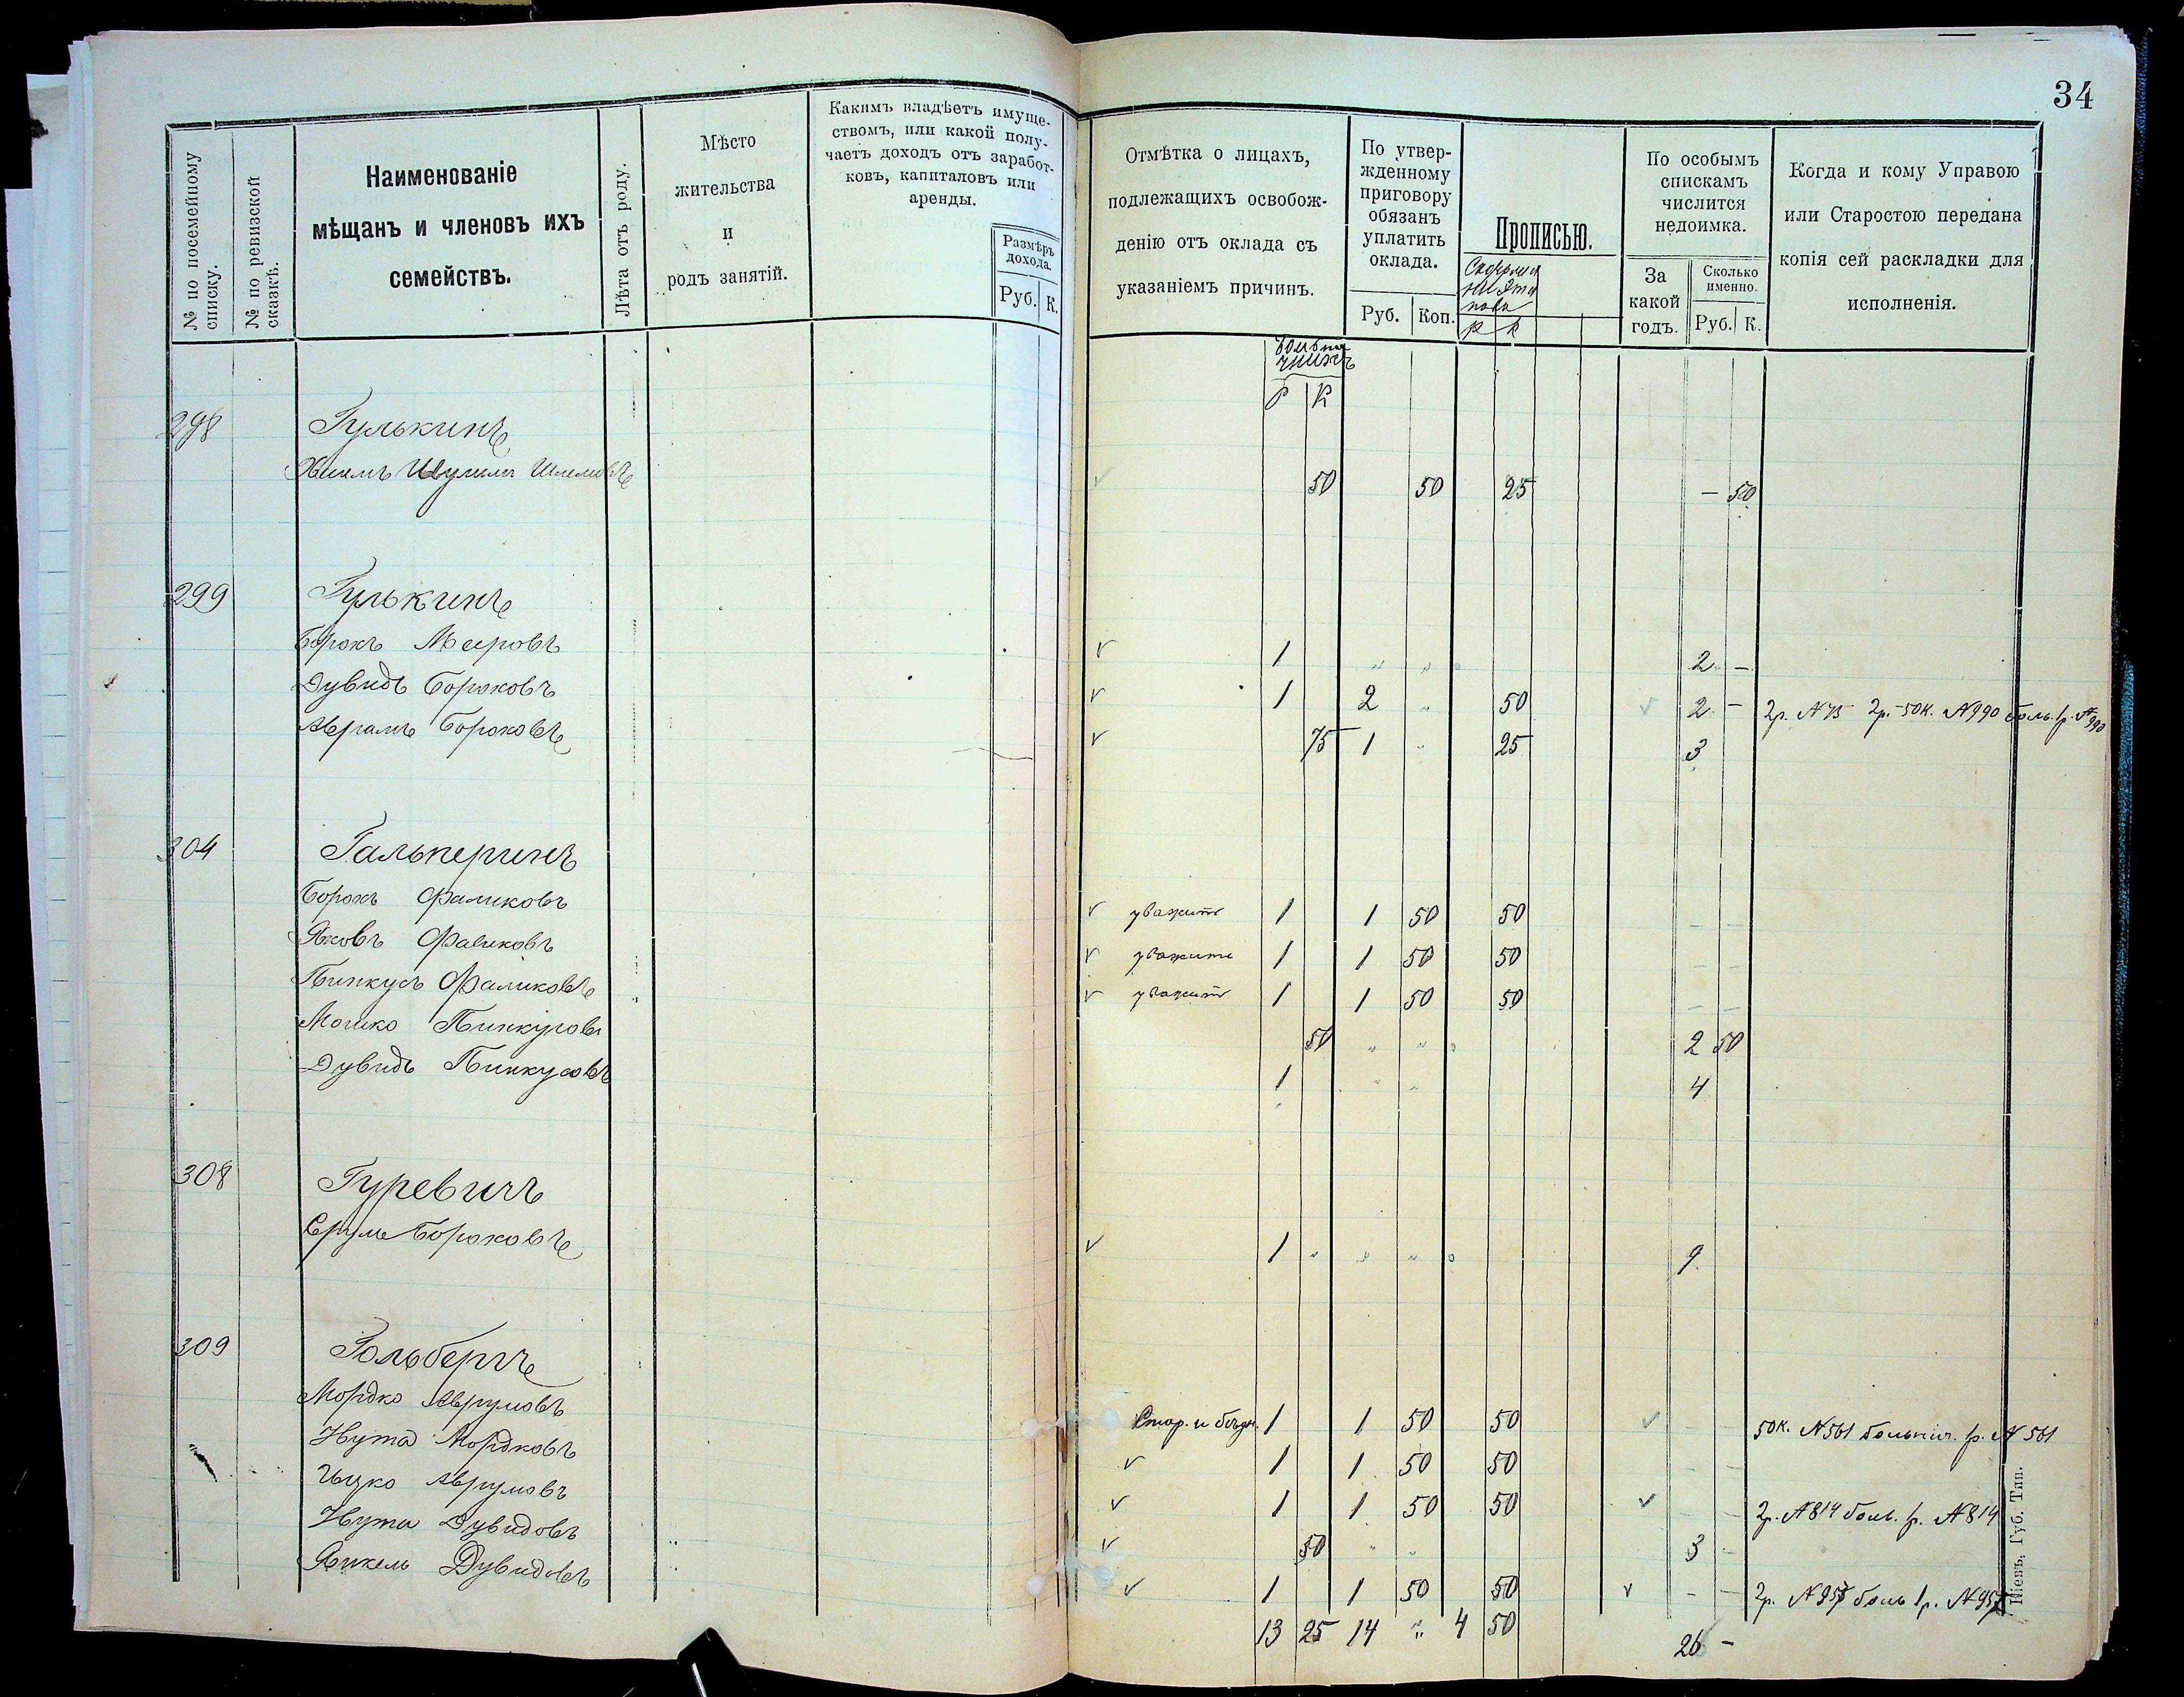 34
№ по посемейному списку.
№ по ревизской сказкѣ.
Наименованіе мѣщанъ и членовъ ихъ семействъ.
Лѣта отъ роду.
Мѣсто жительства и родъ занятій.
Какимъ владѣетъ имуществомъ, или какой получаетъ доходъ отъ заработковъ, капиталовъ или аренды.
Размѣръ дохода.
Руб. К.
Отмѣтка о лицахъ, подлежащихъ освобожденію отъ оклада съ указаніемъ причинъ.
По утвержденному приговору обязанъ уплатить оклада.
Руб. Коп.
Прописью.
Р К
По особымъ спискамъ числится недоимка.
За какой годъ.
Сколько именно.
Руб. К.
Когда и кому Управою или Старостою передана копія сей раскладки для исполненія.
Р К
298 Гулькинъ
Хаимъ Шлемовъ 50 50 25 – 50
299 Гулькинъ
Борохъ Мееровъ 1 „ „ 2 –
Дувидъ Бороховъ 1 2 „ 50 2 – 2р. N 75 2р. – 50к. N 990 боль. 1р. N 990
Абрамъ Бороховъ 75 1 „ 25 3
304 Гальперинъ
Борохъ Фаликовъ уважит 1 1 50 50 – –
Яковъ Фаликовъ уважит 1 1 50 50 – –
Пинкусъ Фаликовъ уважит 1 1 50 50 – –
Мошко Пинкусовъ 50 „ „ 2 50
Дувидъ Пинкусовъ 1 „ „ 4
308 Гуревичъ
Срулъ Бороховъ 1 „ „ „ 9
309 Гольбергъ
Мордко Аврумовъ Стар. и бѣдн. 1 1 50 50 – – 50к. N 561 больнич. 1р. N 561
Нута Мордковъ 1 1 50 50 – –
Ицко Аврумовъ 1 1 50 50 – – 2р. N 814 боль. 1р. N 814
Нута Дувидовъ 50 „ „ 3 –
Янкель Дувидовъ 1 1 50 50 – – 2р. N 957 боль 1р. N 957
13 25 14 „ 4 50 26 –
Кіевъ, Губ. Тип.